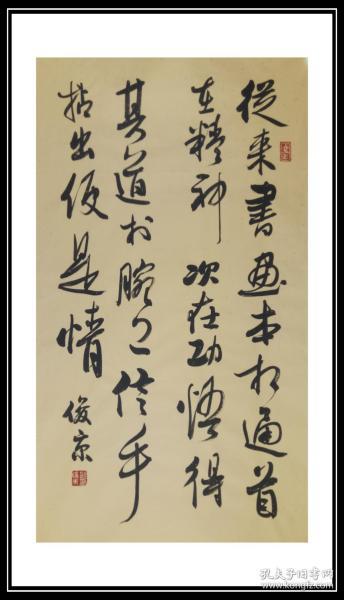 從来書畫本相通首
在精神次在功悟得
其道於腕信手
拈出便是情
俊京
孔夫子旧书网